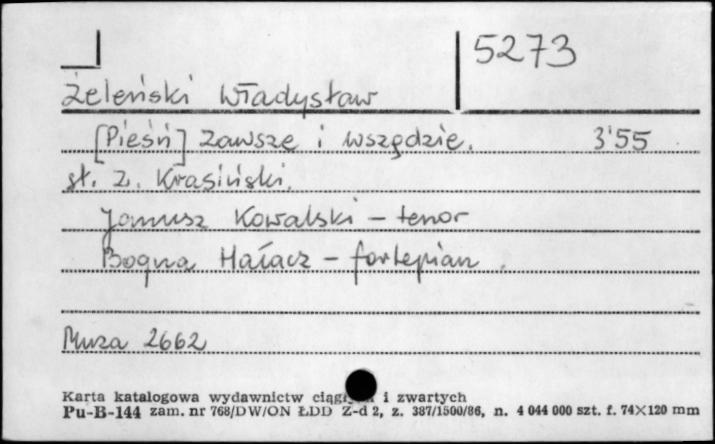 5273
Żeleński Władysław
[Pieśń] Zawsze i wszędzie. 3'55
sł. Z. Krasiński.
Janusz Kowalski - tenor
Bogna Hałacz - fortepian.
Muza 2662
Karta katalogowa wydawnictw i zwartych
Pu-B-144 zam. nr 768/DW/ON ŁDD Z-d 2, z. 387/1500/86, n. 4 044 000 szt. f. 74×120 mm